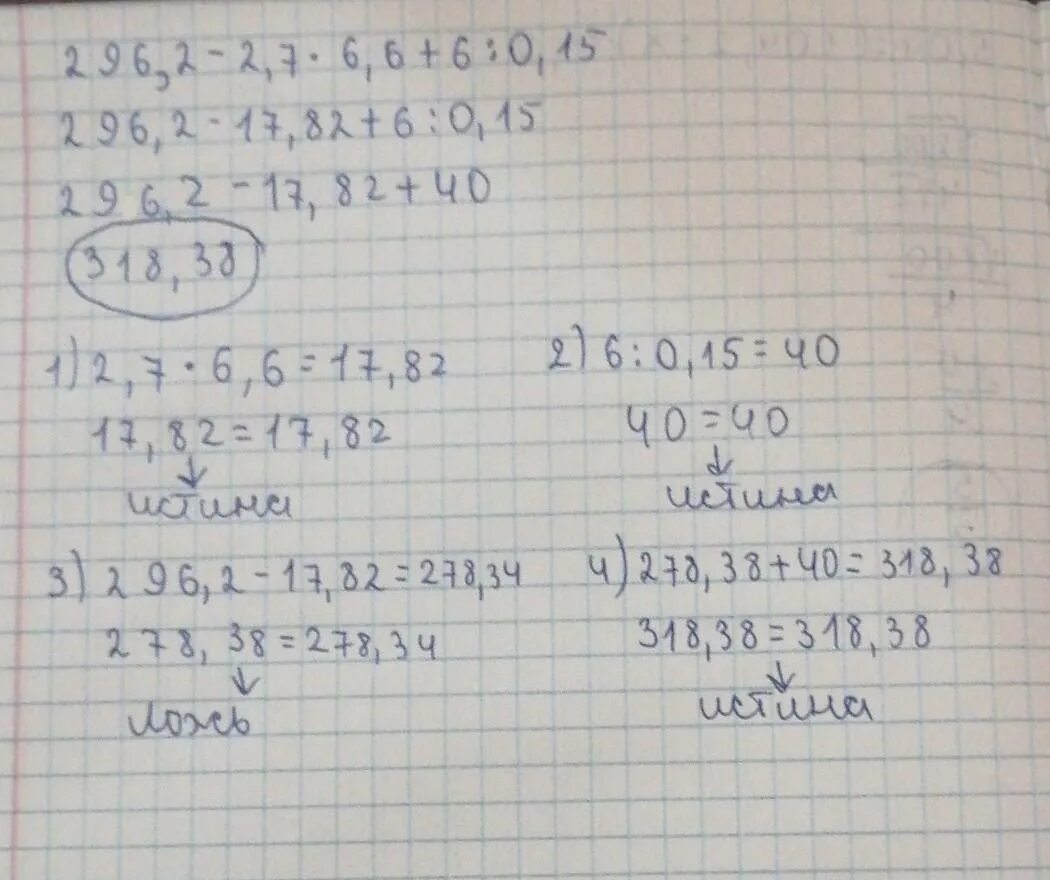 296,2 - 2,7 · 6,6 + 6 : 0,15
296,2 - 17,82 + 6 : 0,15
296,2 - 17,82 + 40
318,38
1) 2,7 · 6,6 = 17,82
17,82 = 17,82
↓
истина
2) 6 : 0,15 = 40
40 = 40
↓
истина
3) 296,2 - 17,82 = 278,34
278,38 = 278,34
↓
ложь
4) 278,38 + 40 = 318,38
318,38 = 318,38
↓
истина